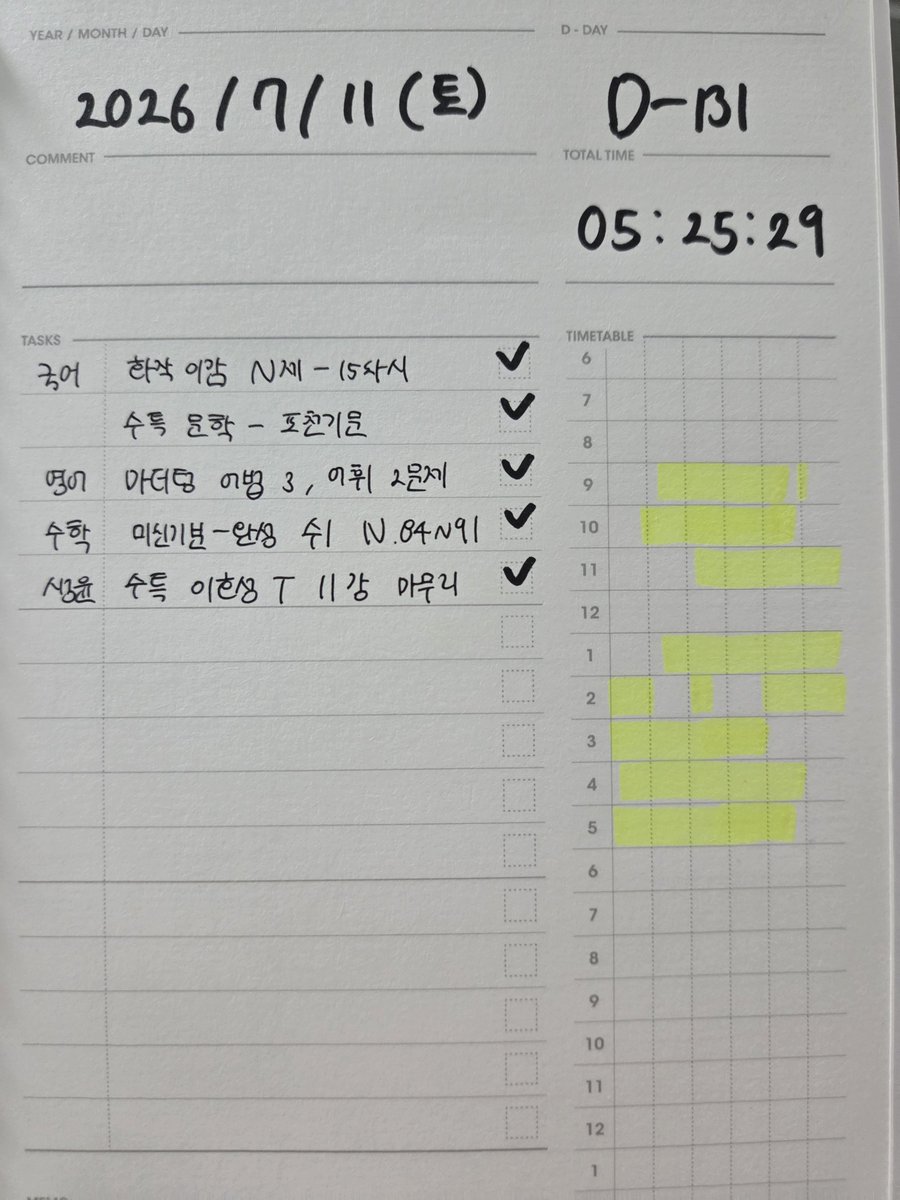 YEAR / MONTH / DAY
D - DAY
2026/7/11 (토)
D-131
COMMENT
TOTAL TIME
05:25:29
TASKS
TIMETABLE
국어 화작 이감 N제 - 15차시
수특 문학 - 포천기문
영어 마더텅 어법 3, 어휘 2문제
수학 미친기분-완성 수1 N.84~91
생윤 수특 이현성T 11강 마무리
6
7
8
9
10
11
12
1
2
3
4
5
6
7
8
9
10
11
12
1
MEMO